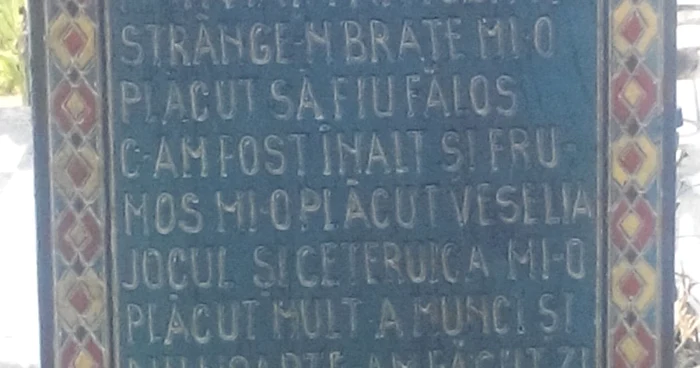 STRÂNGE-N BRAȚE MI-O
PLĂCUT SĂ FIU FĂLOS
C-AM FOST ÎNALT ȘI FRU-
MOS MI-O PLĂCUT VESELIA
JOCUL ȘI CETERUICA MI-O
PLĂCUT MULT A MUNCI ȘI
AM FĂCUT ZI